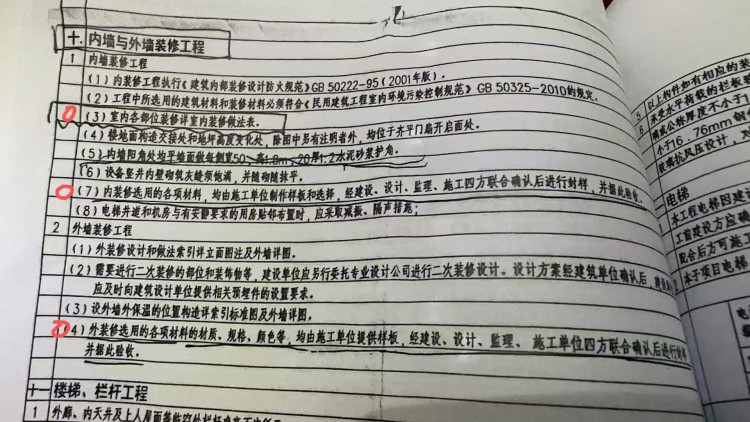 十. 内墙与外墙装修工程
1 内墙装修工程
(1) 内装修工程执行《建筑内部装修设计防火规范》GB 50222-95(2001年版).
(2) 工程中所选用的建筑材料和装修材料必须符合《民用建筑工程室内环境污染控制规范》GB 50325-2010的规定.
(3) 室内各部位装修详室内装修做法表.
(4) 楼地面构造交接处和地坪高度变化处, 除图中另有注明者外, 均位于齐平门扇开启面处.
(5) 内墙阳角处均平墙面做每侧宽50、高1.8m、20厚1:2水泥砂浆护角.
(6) 设备竖井内壁砌筑灰缝须饱满, 并随砌随抹平.
(7) 内装修选用的各项材料, 均由施工单位制作样板和选择, 经建设、设计、监理、施工四方联合确认后进行封样, 并据此验收.
(8) 电梯井道和机房与有安静要求的用房贴邻布置时, 应采取减振、隔声措施;
2 外墙装修工程
(1) 外装修设计和做法索引详立面图注及外墙详图.
(2) 需要进行二次装修的部位和装饰物等, 建设单位应另行委托专业设计公司进行二次装修设计. 设计方案经建筑单位确认后,
应及时向建筑设计单位提供相关预埋件的设置要求.
(3) 设外墙外保温的位置构造详索引标准图及外墙详图.
(4) 外装修选用的各项材料的材质、规格、颜色等, 均由施工单位提供样板, 经建设、设计、监理、施工单位四方联合确认后进行封样
并据此验收.
十一 楼梯、栏杆工程
1 外廊、内天井及上人屋面等临空处栏杆
5 以上构件如有相应的
6 承受水平荷载的栏板
小于16.76mm
电梯
1 本工程电梯
2 本子项目电梯